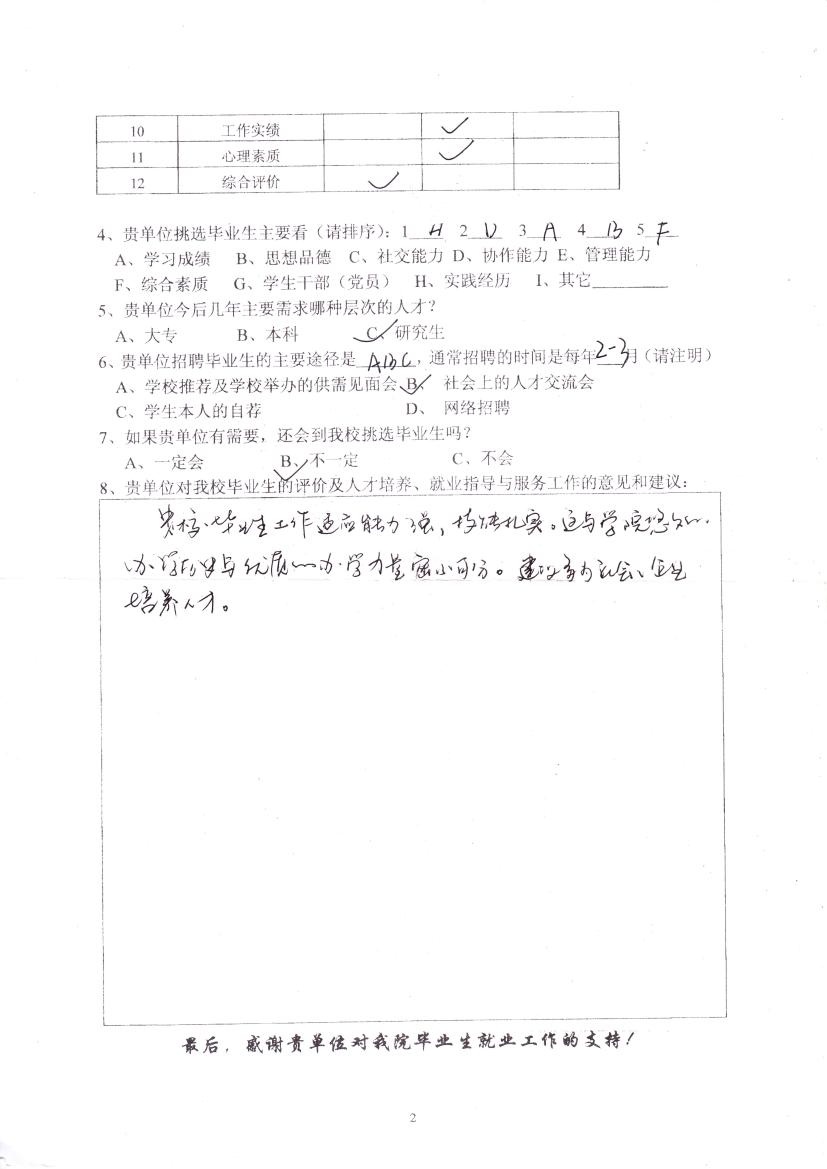 10 工作实绩 ✓
11 心理素质 ✓
12 综合评价 ✓
4、贵单位挑选毕业生主要看（请排序）：1 H 2 D 3 A 4 B 5 F
A、学习成绩 B、思想品德 C、社交能力 D、协作能力 E、管理能力
F、综合素质 G、学生干部（党员） H、实践经历 I、其它
5、贵单位今后几年主要需求哪种层次的人才？
A、大专 B、本科 C、研究生
6、贵单位招聘毕业生的主要途径是 ABC，通常招聘的时间是每年2-3月（请注明）
A、学校推荐及学校举办的供需见面会 B、 社会上的人才交流会
C、学生本人的自荐 D、 网络招聘
7、如果贵单位有需要，还会到我校挑选毕业生吗？
A、一定会 B、不一定 C、不会
8、贵单位对我校毕业生的评价及人才培养、就业指导与服务工作的意见和建议：
贵校毕业生工作适应能力强，技能扎实。这与学院悠久的
办学历史与优质的办学力量密不可分。建议多为社会、企业
培养人才。
最后，感谢贵单位对我院毕业生就业工作的支持！
2